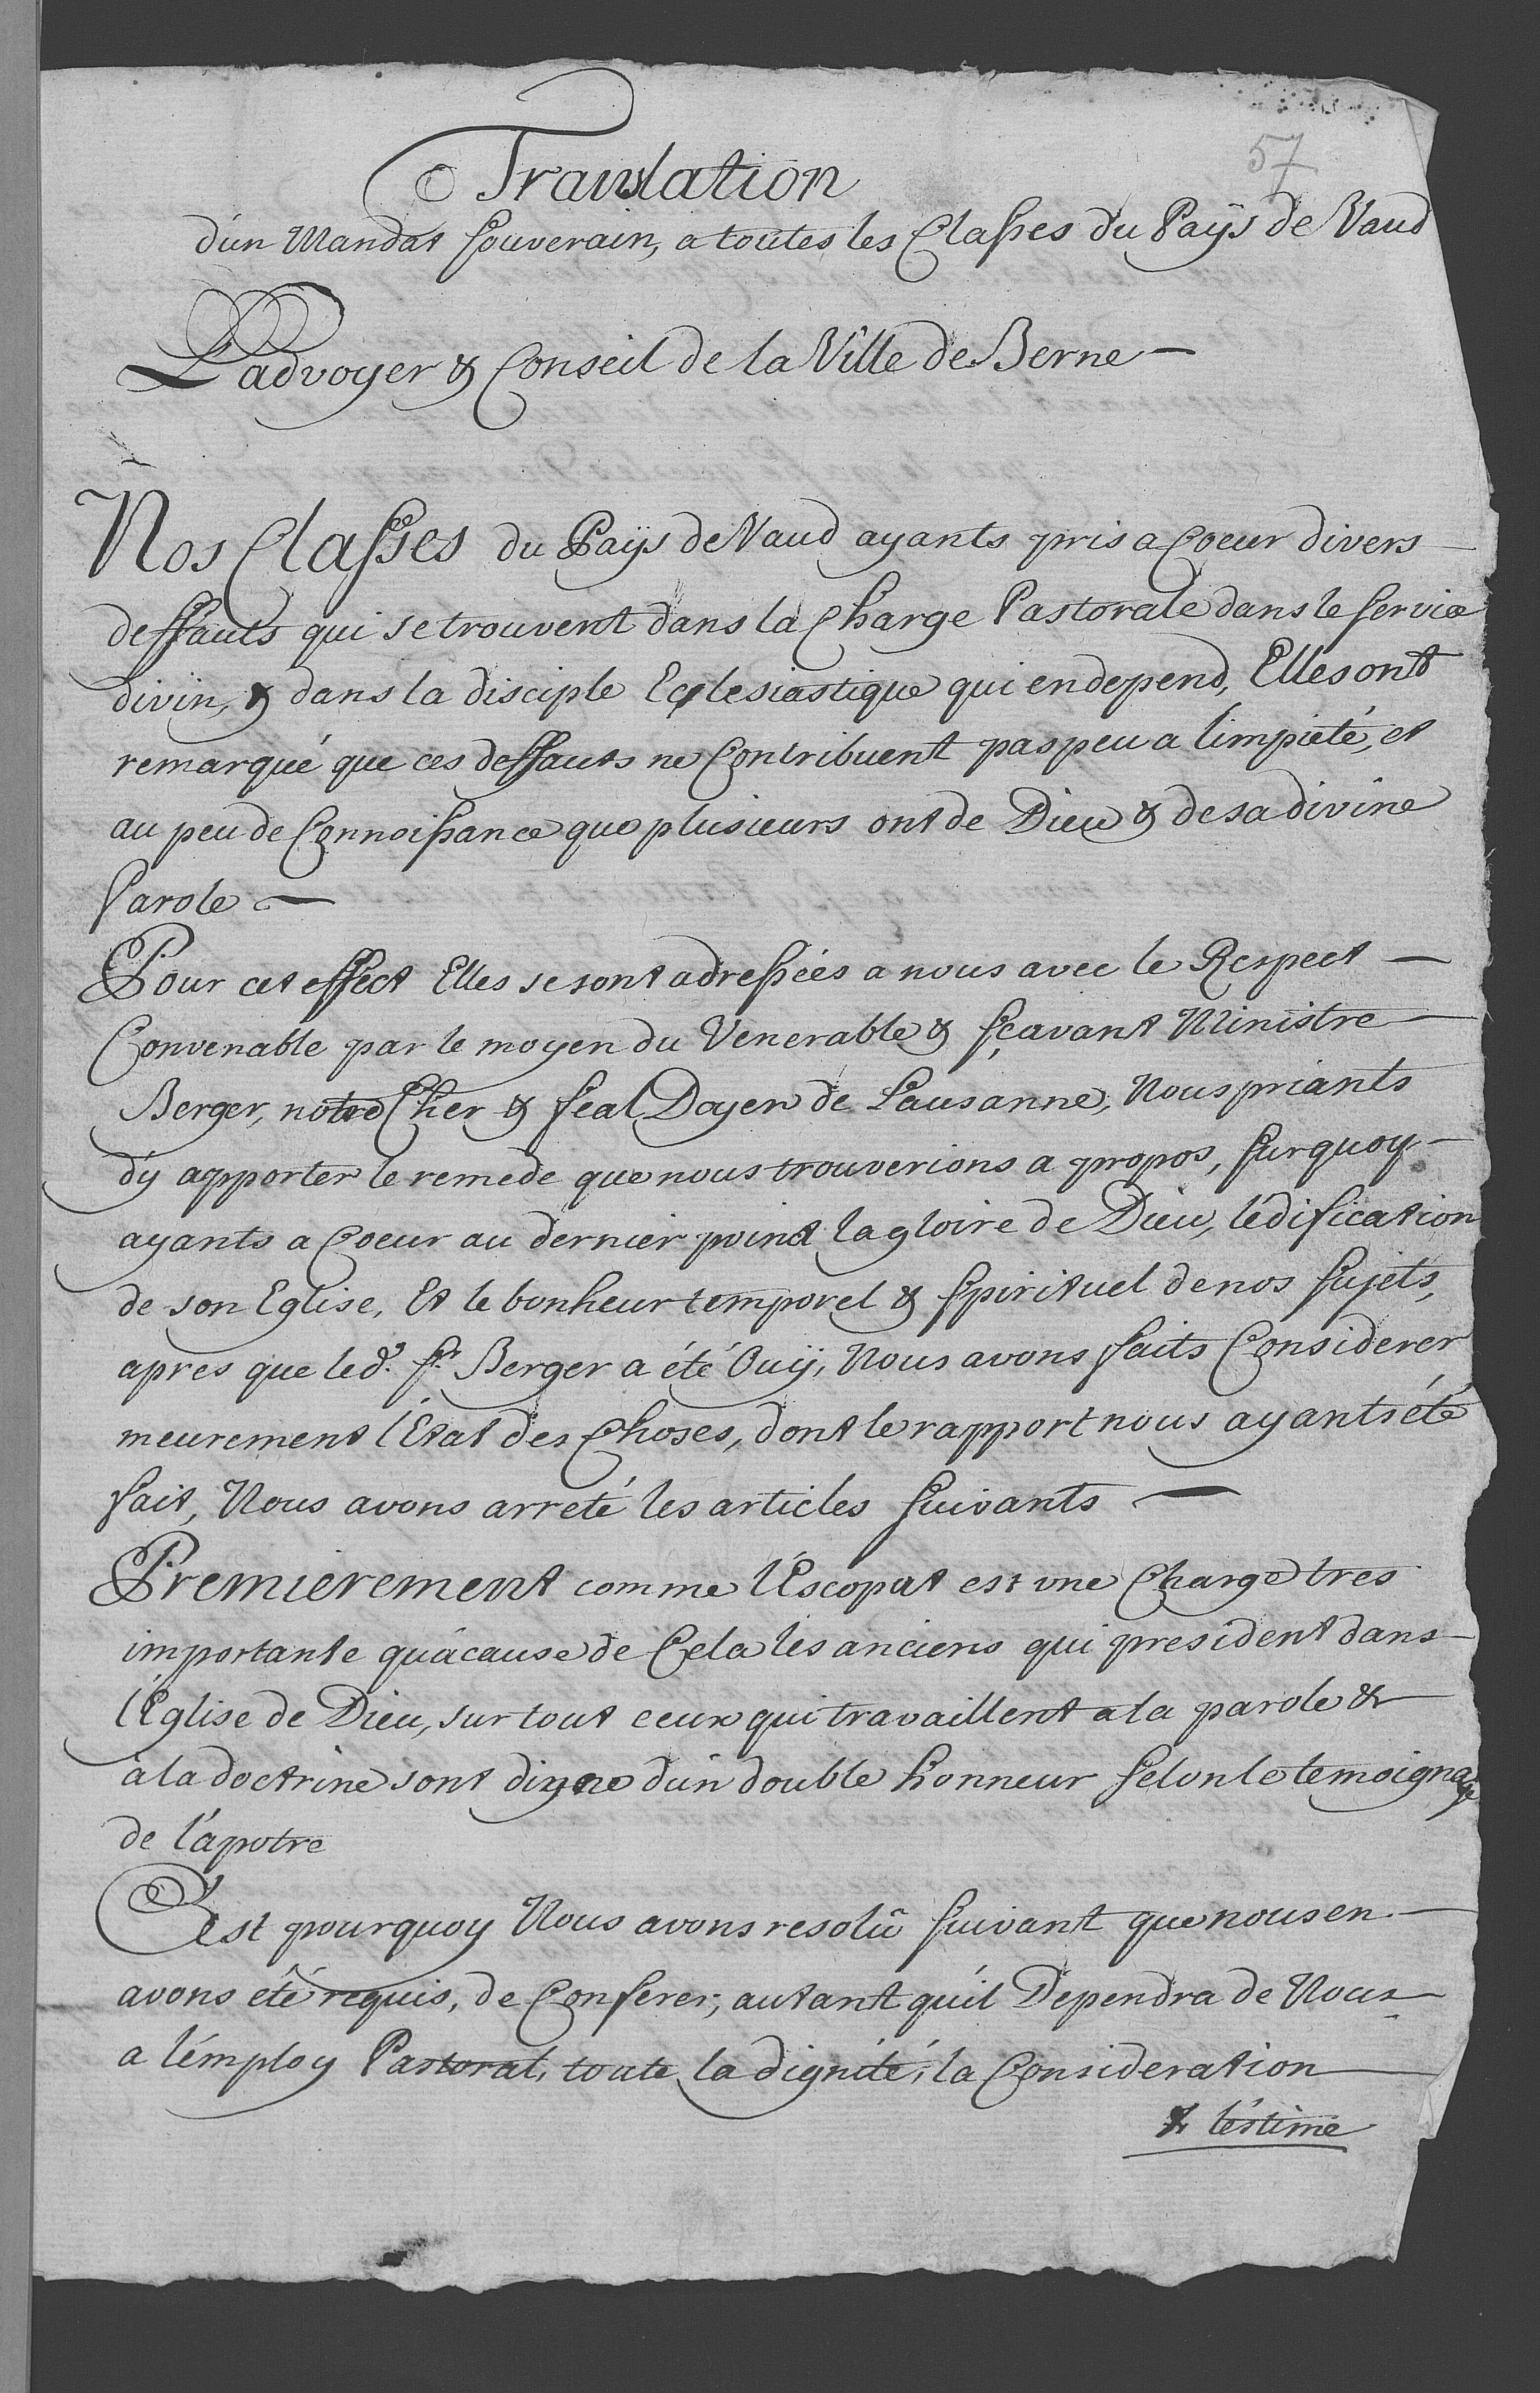 57
Translation
d'un Mandat souverain, a toutes les Classes du Païs de Vaud
L'advoyer & Conseil de la Ville de Berne
Nos Classes du Païs de Vaud ayants pris a Coeur divers
deffauts qui se trouvent dans la Charge Pastorale dans le service
divin, & dans la disciple Eclesiastique qui en depend, Elles ont
remarqué que ces deffauts ne Contribuent pas peu a l'impieté, et
au peu de Connoissance que plusieurs ont de Dieu & de sa divine
parole
Pour cet effect Elles se sont adressées a nous avec le Respect
Convenable par le moyen du Venerable & sçavant Ministre
Berger, notre Cher & feal Doyen de Lausanne, Nous priants
d'y apporter le remede que nous trouverions a propos, surquoy
ayants a Coeur au dernier point la gloire de Dieu, l'édification
de son Eglise, Et le bonheur temporel & spirituel de nos sujets,
apres que led.t S.r Berger a été Ouÿ, Nous avons faits Considerer
meurement l'Etat des Choses, dont le rapport nous ayants été
fait, Nous avons arreté les articles suivants
Premierement comme l'Escopat est une Charge tres
importante qu'à cause de Cela les anciens qui president dans
l'Eglise de Dieu, sur tout ceux qui travaillent a la parole &
à la doctrine sont digne d'un double honneur selon le temoignage
de l'apotre
C'est pourquoy Nous avons resolû suivant que nous en
avons été requis, de Conferer, autant qu'il Dependra de Nous
a l'employ Pastoral, toute la dignité, la Consideration
& l'estime